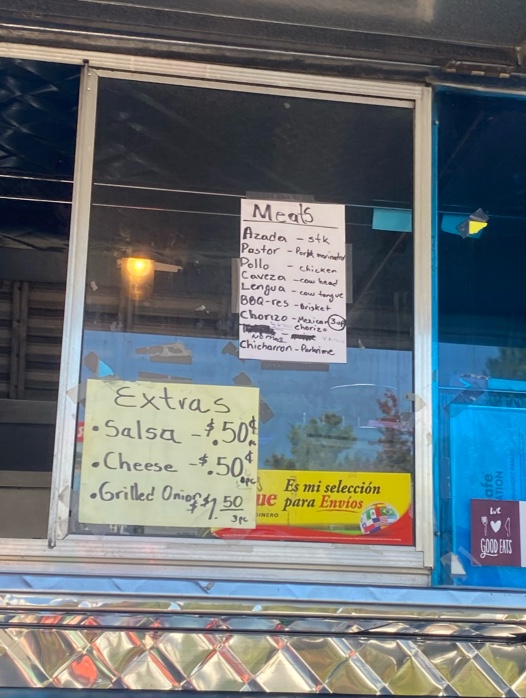 Meals
Azada - stk
Pastor - Pork marinated
Pollo - chicken
Caveza - cow head
Lengua - cow tongue
BBQ-res - Brisket
Chorizo - Mexican
chorizo
Chicharron - Porkrime
Extras
• Salsa - $.50¢
• Cheese - $.50¢
• Grilled Onions $1.50
3pc
Es mi selección
para Envíos
DINERO
WE
GOOD EATS